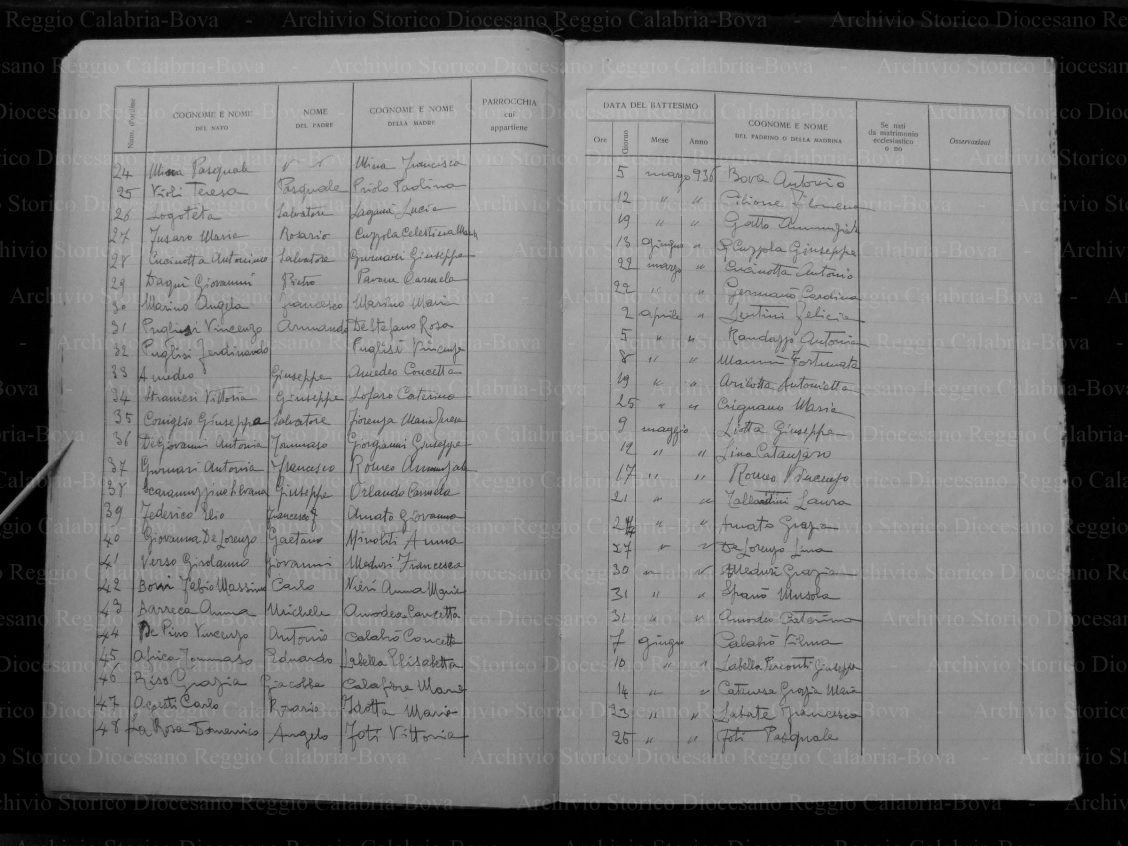 Num. d'ordine COGNOME E NOME DEL NATO NOME DEL PADRE COGNOME E NOME DELLA MADRE PARROCCHIA cui appartiene
24 Mina Pasquale Mina Francesca
25 Violi Teresa Pasquale Priolo Paolina
26 Logotèta Salvatore Laganà Lucia
27 Fusaro Maria Rosario Cuzzola Celestina Maria
28 Cucinotta Antonino Salvatore Gurnari Giuseppa
29 Daqui Giovanni Pietro Pavone Carmela
30 Marino Angela Francesco Marino Maria
31 Puglisi Vincenzo Armando De Stefano Rosa
32 Puglisi Ferdinando Puglisi Vincenza
33 Amedeo Giuseppe Amedeo Concetta
34 Stranieri Vittoria Giuseppe Lofaro Caterina
35 Coniglio Giuseppa Salvatore Fiorenza Maria
36 De Giovanni Antonia Tommaso Giorgianni Giuseppa
37 Gurnari Antonia Francesco Romeo Annunziata
38 Scaramuzzino Silvana Giuseppe Orlando Carmela
39 Federico Elio Francesco Amato Giovanna
40 Giovanna De Lorenzo Gaetano Minoliti Anna
41 Verso Girolamo Giovanni Medusi Francesca
42 Borri Fabio Massimo Carlo Nieri Anna Maria
43 Barreca Anna Michele Amodeo Concetta
44 De Pino Vincenzo Antonio Calabrò Concetta
45 Africa Tommaso Eduardo Labella Elisabetta
46 Riso Grazia Giacobbe Calafiore Maria
47 Agosti Carlo Rosario Idotta Maria
48 La Rosa Domenico Angelo Foti Vittoria
DATA DEL BATTESIMO Ore Giorno Mese Anno COGNOME E NOME DEL PADRINO O DELLA MADRINA Se nati da matrimonio ecclesiastico o no Osservazioni
5 marzo 936 Bova Antonio
12 " " Cilione Filomena
19 " " Gatto Annunziata
13 Giugno " Cuzzola Giuseppe
22 marzo " Cucinotta Antonio
22 " " Germanò Carolina
2 aprile " Gentini Felicia
5 " " Randazzo Antonia
8 " " Mannin Fortunata
19 " " Aricotta Antonietta
25 " " Crignano Maria
9 maggio " Liotta Giuseppe
12 " " Lina Catanzaro
17 " " Romeo Vincenzo
21 " " Talladini Laura
24 " " Amato Grazia
27 " " De Lorenzo Lina
30 " " Medusi Grazia
31 " " Spanò Mursola
31 " " Amodeo Caterina
7 giugno Calabrò Filma
10 " " Labella Perconti Giuseppa
14 " " Catanesa Grazia Maria
23 " " Labate Francesco
25 " " Foti Pasquale
Archivio Storico Diocesano Reggio Calabria-Bova